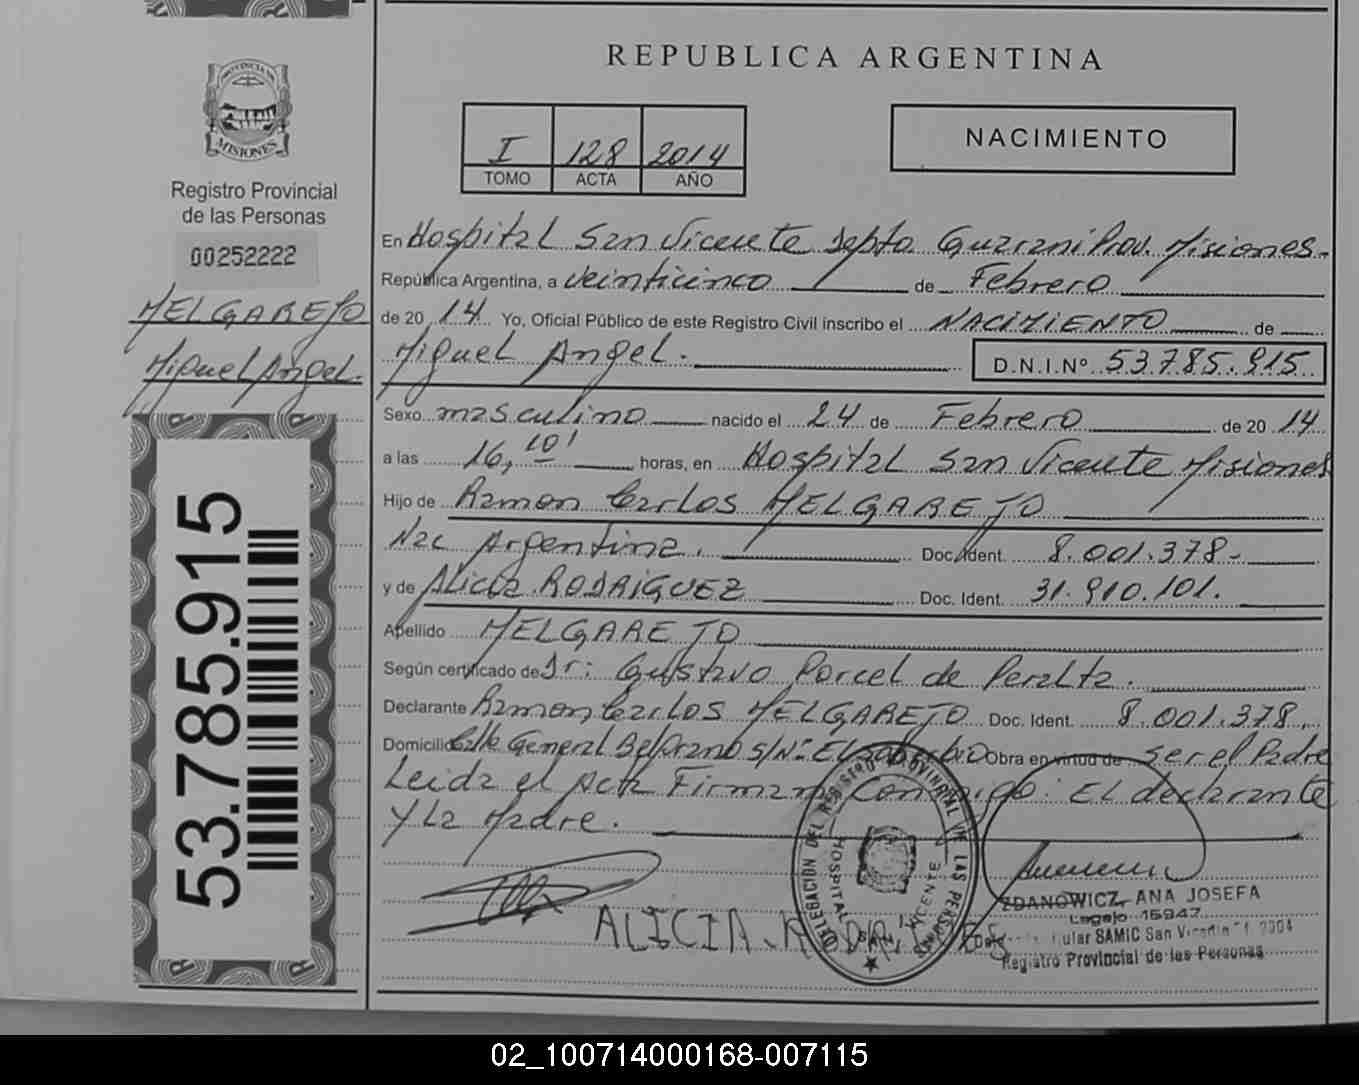 PROVINCIA DE
MISIONES
Registro Provincial
de las Personas
00252222
MELGAREJO
Miguel Angel.
53.785.915
REPUBLICA ARGENTINA
I 128 2014
TOMO ACTA AÑO
NACIMIENTO
En Hospital San Vicente Depto Guarani Prov. Misiones-
República Argentina, a veinticinco de Febrero
de 20 14 Yo, Oficial Público de este Registro Civil inscribo el NACIMIENTO de
Miguel Angel. D.N.I.Nº 53.785.915
Sexo masculino nacido el 24 de Febrero de 20 14
a las 16,10' horas, en Hospital San Vicente Misiones
Hijo de Ramon Carlos MELGAREJO
Nac Argentina. Doc. Ident. 8.001.378-
y de Alicia RODRIGUEZ Doc. Ident. 31.910.101.
Apellido MELGAREJO
Según certificado de Dr: Gustavo Porcel de Peralta.
Declarante Ramon Carlos MELGAREJO Doc. Ident. 8.001.378.
Domicilio Calle General Belgrano s/Nº El Soberbio Obra en virtud de ser el Padre
Leida el Acta Firman Conmigo: El declarante
Y La Madre.
DELEGACION DEL REGISTRO PROVINCIAL DE LAS PERSONAS
HOSPITAL SAN VICENTE
ALICIA
ZDANOWICZ, ANA JOSEFA
Legajo 15947
SAMIC San Vicente
Registro Provincial de las Personas
02_100714000168-007115